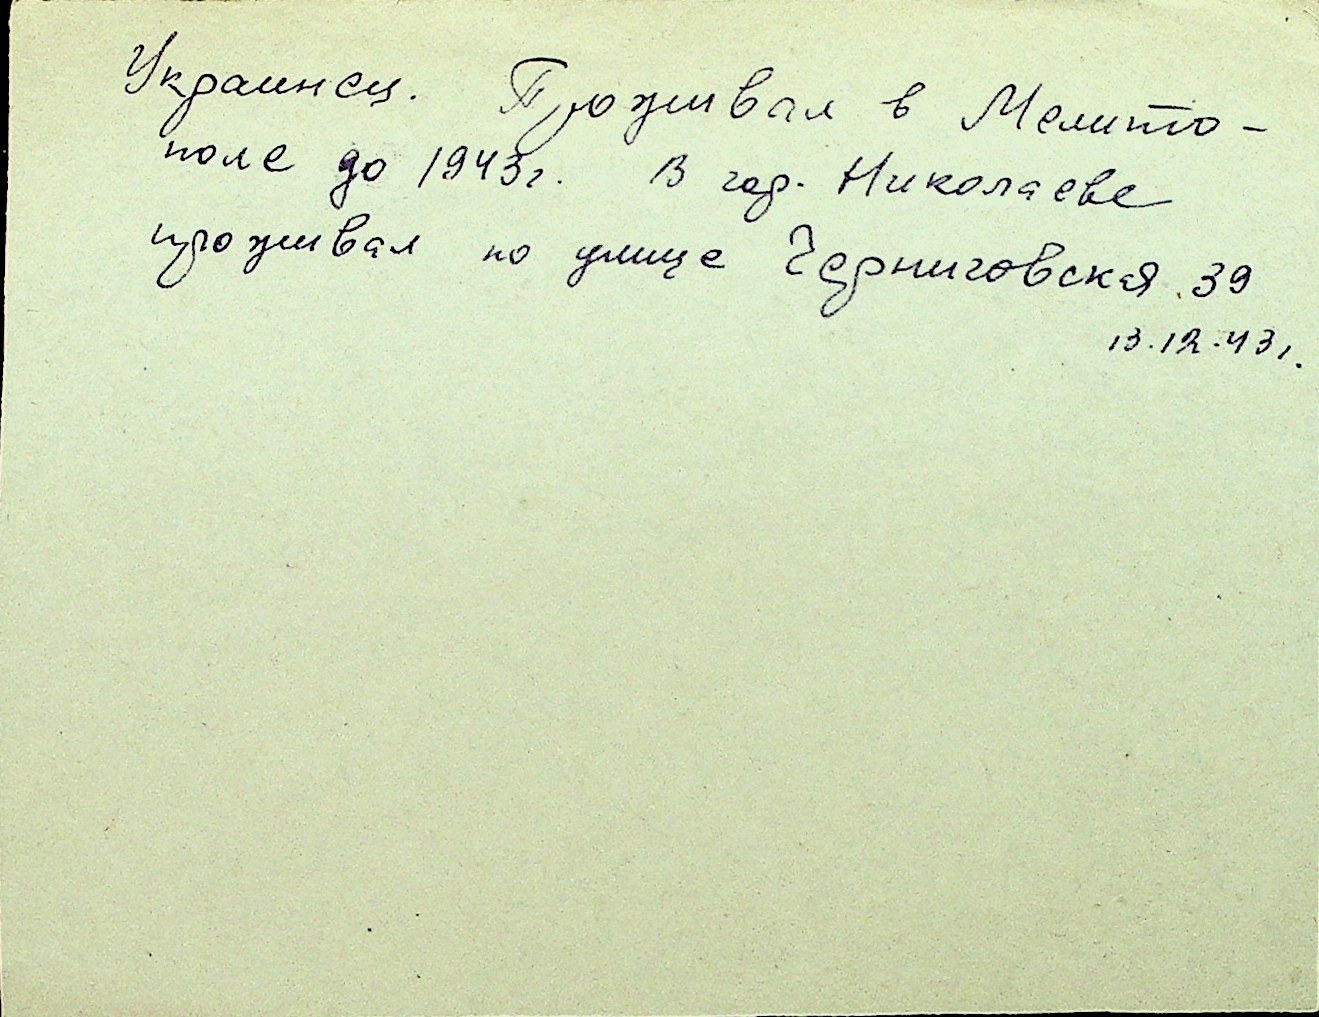 Украинец. Проживал в Мелито-
поле до 1943г. В гор. Николаеве
проживал по улице Черниговская 39
13.12.43г.